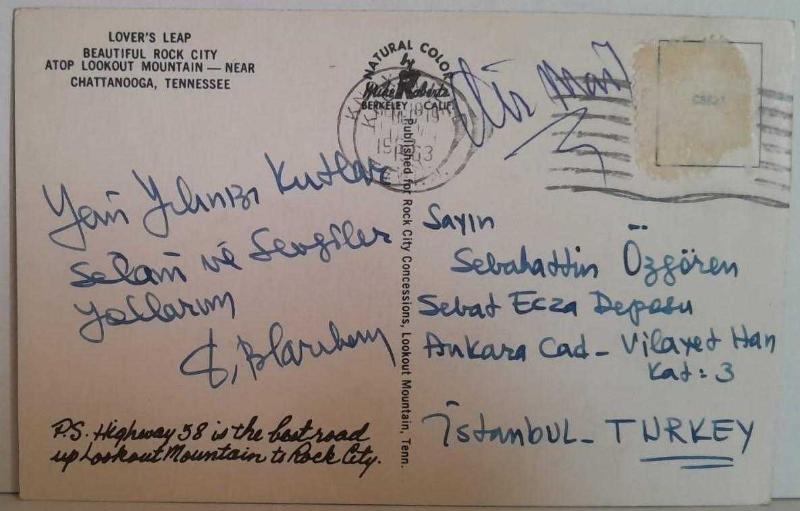 LOVER'S LEAP
BEAUTIFUL ROCK CITY
ATOP LOOKOUT MOUNTAIN — NEAR
CHATTANOOGA, TENNESSEE
NATURAL COLOR
by
Mike Roberts
BERKELEY CALIF.
Air Mail
Yeni Yılınızı Kutlar
Selam ve Sevgiler
Yollarım
P.S. Highway 58 is the best road
up Lookout Mountain to Rock City.
Published for Rock City Concessions, Lookout Mountain, Tenn.
Sayın
Sebahattin Özgören
Sebat Ecza Deposu
Ankara Cad - Vilayet Han
Kat: 3
İstanbul - TURKEY